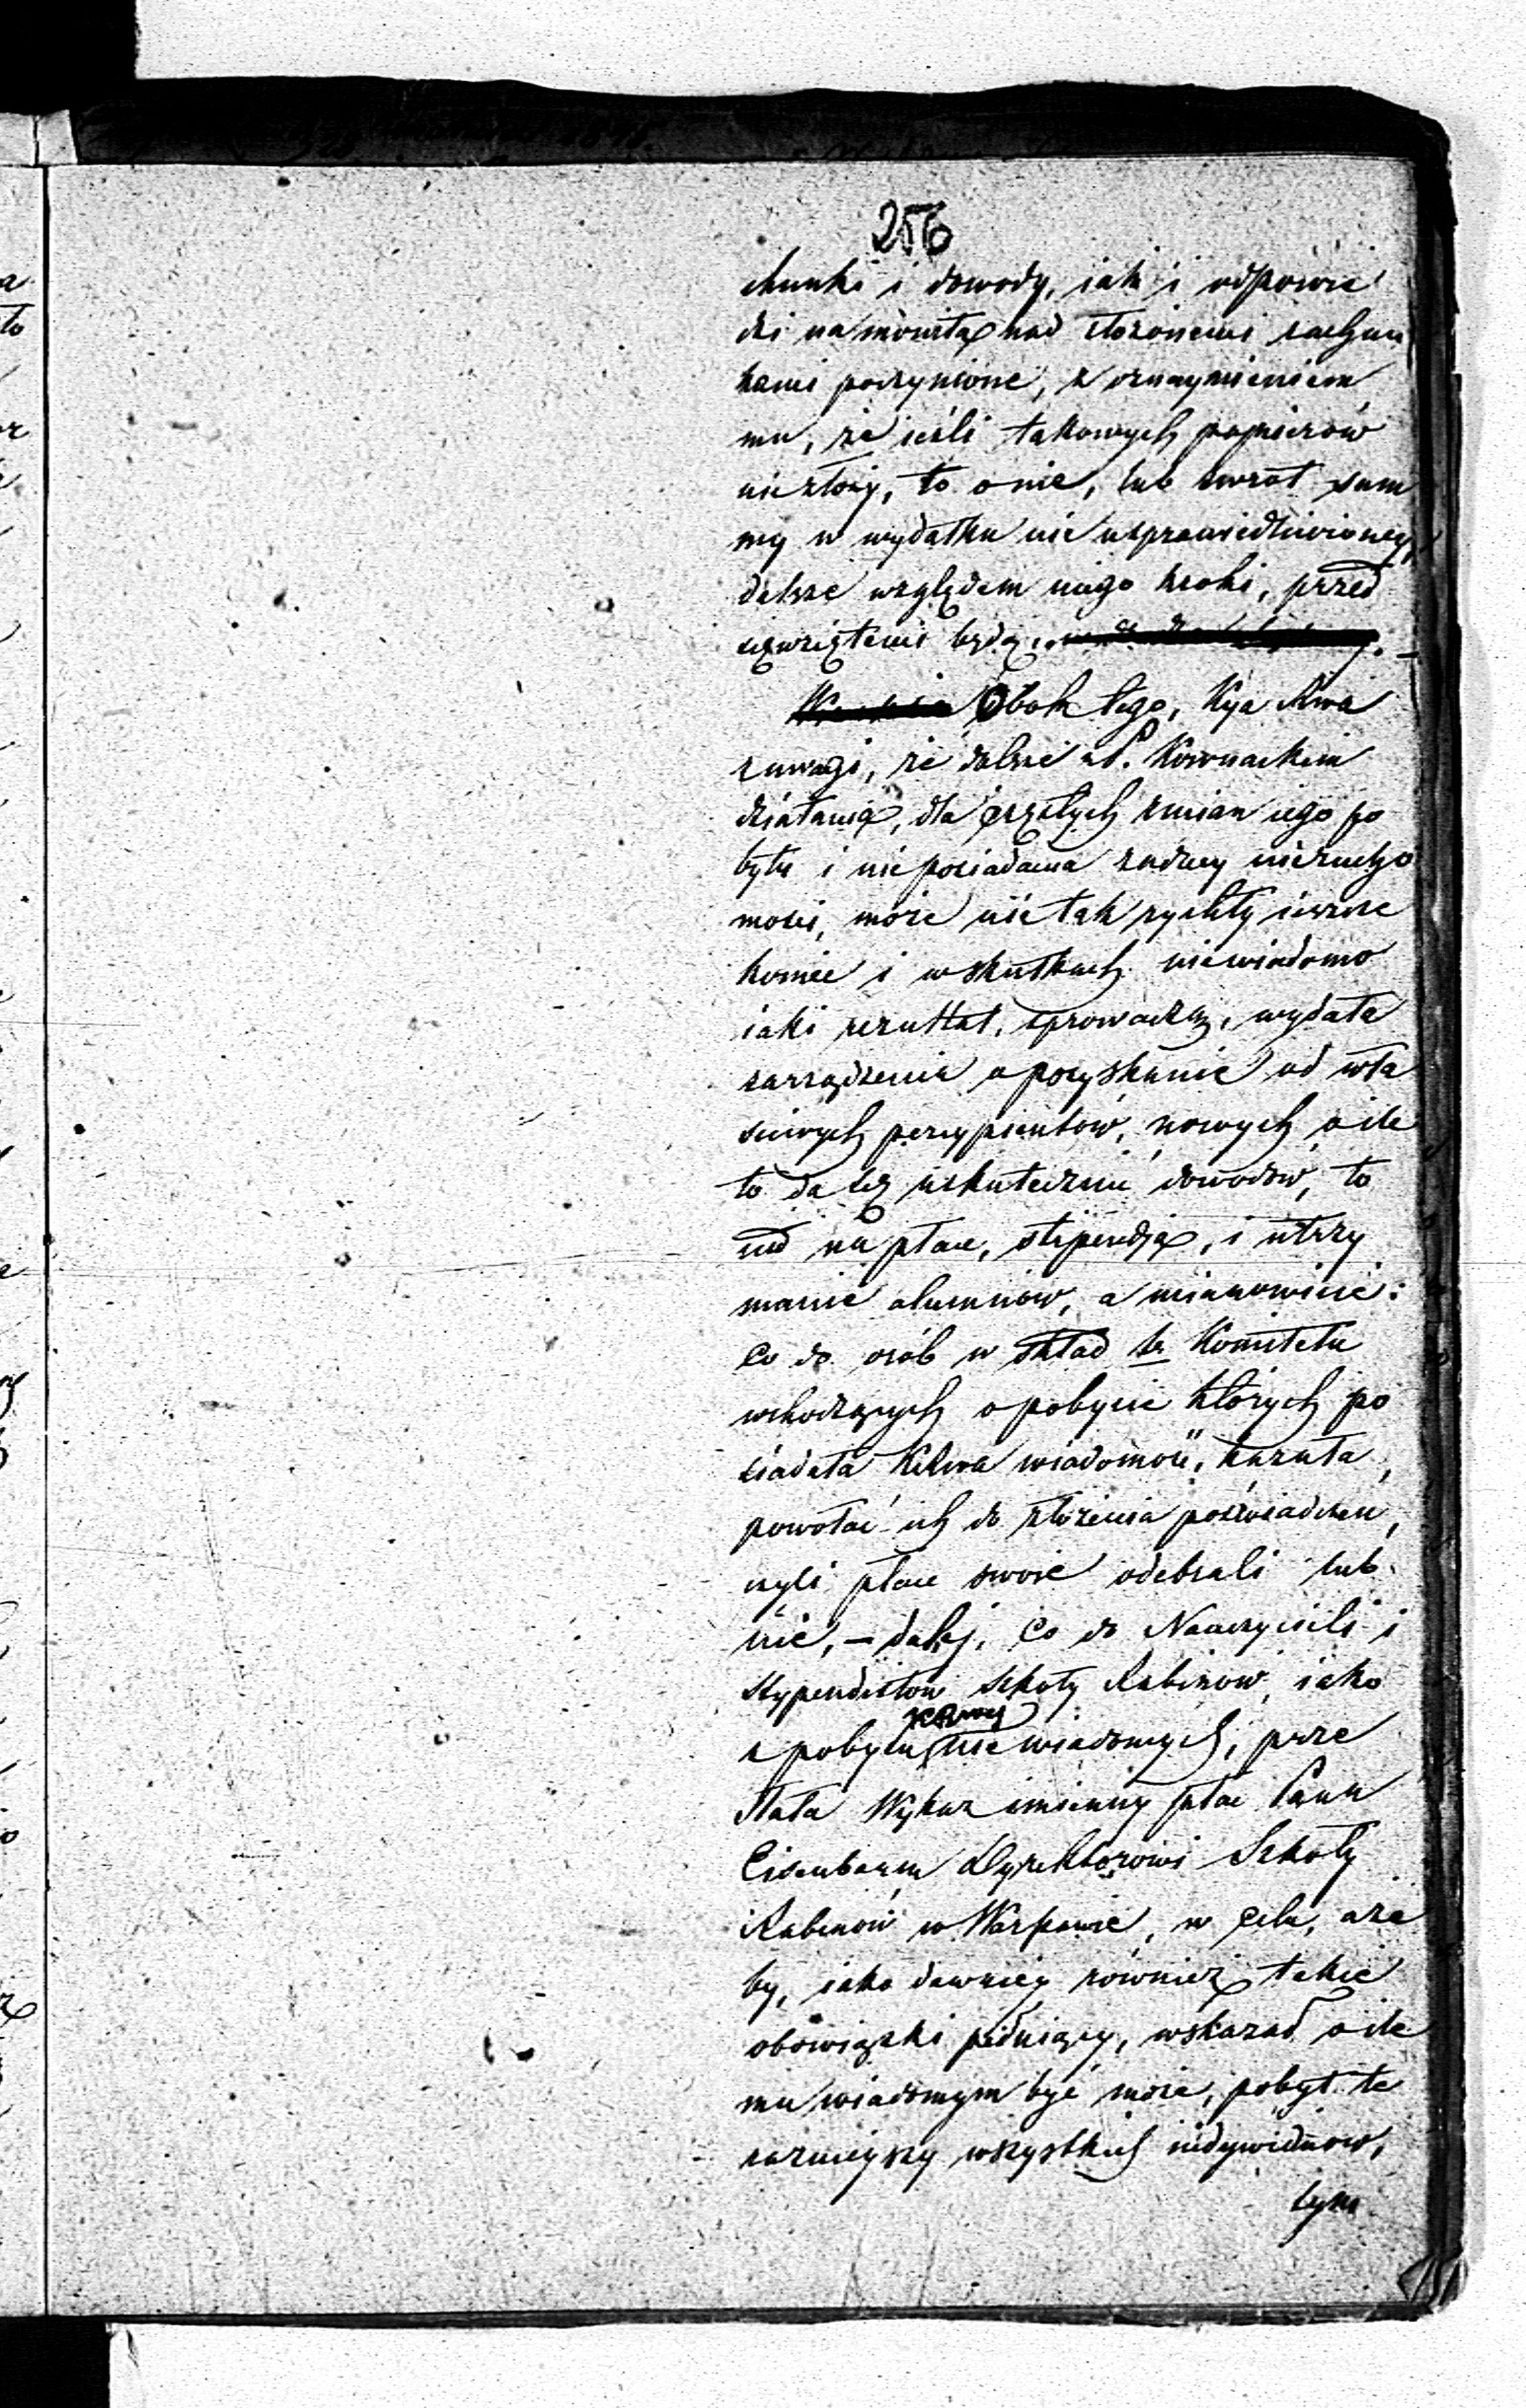 256
chunki i dowody, iak i odpowie
dzi na monita nad złożonemi rachun
kami poczynione, z oznaymieniem
mu, że ieśli takowych papierów
niezłoży, to o nie, lub zwrot sum
my w wydatku nie usprawiedliwioney,
dalsze względem niego kroki, przed
sięwziętemi będą.
Obok tego, Kga Rwa
z uwagi, że dalsze z P. Kownackim
działania, dla częstych zmian iego po
bytu i nieposiadania żadney nierucho
mości, może nietak rychły ieszcze
koniec i w skutkach niewiadomo
iaki rezultat, sprowadzą, wydała
zarządzenia o pozyskanie od wła
ściwych percypientów, nowych, o ile
to da się uskutecznić dowodów, to
iest na płace, stipendja, i utrzy
manie alumnów, a mianowicie:
co do osób w skład b. Komitetu
wchodzących o pobycie których po
siadała KRwa wiadomość, kazała,
powołać ich do złożenia poświadczeń,
czyli płace swoie odebrali lub
nie, – daley, co do Nauczycieli i
Stypendistów Szkoły Rabinów, iako
z pobytu KRwey niewiadomych, prze
słała Wykaz imienny płac Panu
Eisenbaum Dyrektorowi Szkoły
Rabinów w Warszawie, w celu, aże
by, iako dawniey również takie
obowiązki pełniący, wskazał o ile
mu wiadomym być może, pobyt te
raznieyszy wszystkich indywiduow,
tym